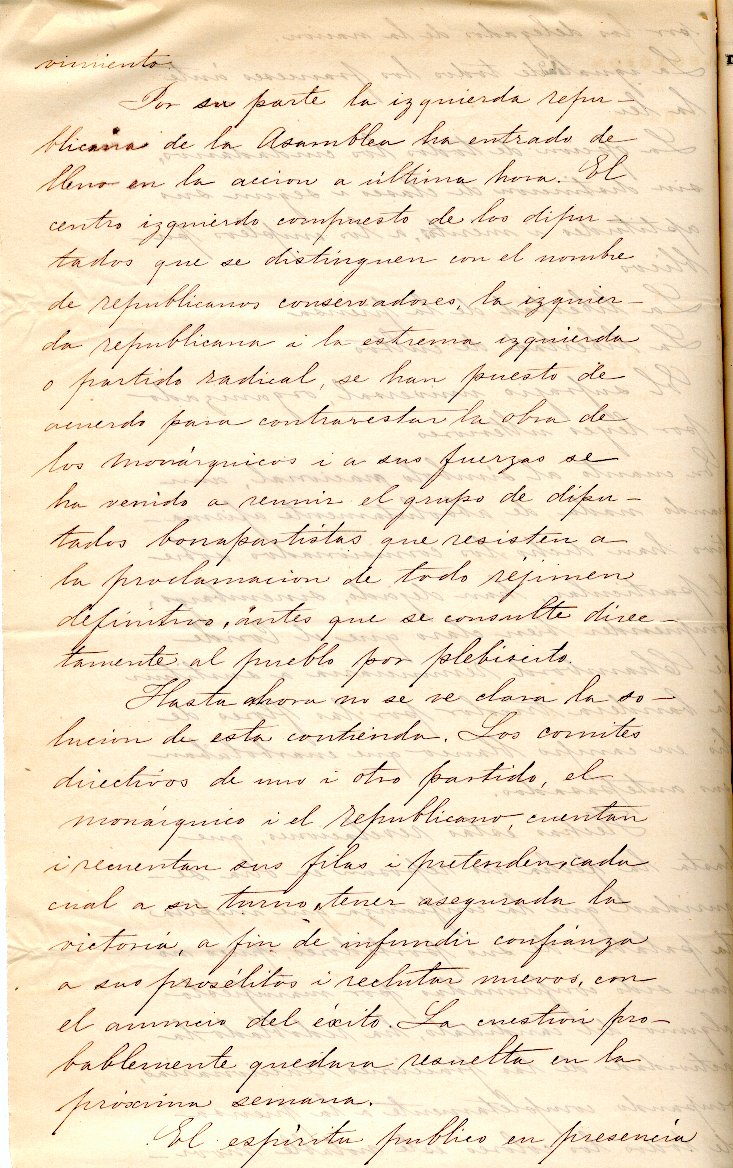 vimiento.
Por su parte la izquierda repu-
blicana de la Asamblea ha entrado de
lleno en la accion a última hora. El
centro izquierdo compuesto de los dipu-
tados que se distinguen con el nombre
de republicanos conservadores, la izquier-
da republicana i la estrema izquierda
o partido radical, se han puesto de
acuerdo para contrarestar la obra de
los monárquicos i a sus fuerzas se
ha venido a reunir el grupo de dipu-
tados bonapartistas que resisten a
la proclamacion de todo réjimen
definitivo, ántes que se consulte direc-
tamente al pueblo por plebiscito.
Hasta ahora no se ve clara la so-
lucion de esta contienda. Los comites
directivos de uno i otro partido, el
monárquico i el republicano, cuentan
i recuentan sus filas i pretenden, cada
cual a su turno, tener asegurada la
victoria, a fin de infundir confianza
a sus prosélitos i reclutar nuevos, con
el anuncio del éxito. La cuestion pro-
bablemente quedara resuelta en la
próxima semana.
El espíritu publico en presencia